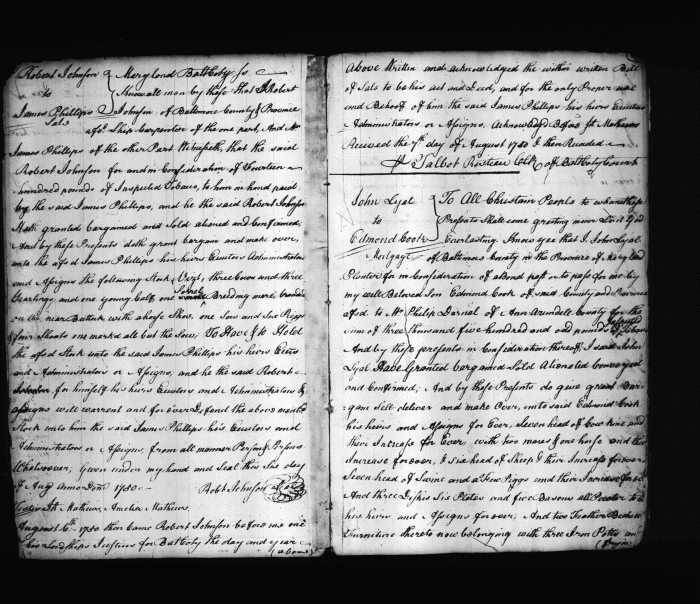 Robert Johnson } Maryland Balt Coty ss
to } Know all men by these that I Robert
James Phillips } Johnson of Baltimore County & Province
Sale afsd Ship Carpenter of the one part, And Mr
James Phillips of the other Part Witnesseth, that the said
Robert Johnson for and in Consideration of Fourteen
hundred pounds of Inspected Tobaco, to him in hand paid
by the said James Phillips, and he the said Robert Johnson
Hath granted bargamed and Sold aliened and Confirmed,
And by these Presents doth grant bargam and make over,
unto the afsd James Phillips his heirs Executors Administrators
and Assigns the following Stock Vizt, three Cows and three
Yearlings, and one young Calf, one Sorrel Breding mare, branded
on the near Buttock with a horse Shoe, one Sow and Six Piggs
& four Shoats one mark'd all but the Sow; To Have & to Hold
the afsd Stock unto the said James Phillips his heirs Exrs
and Administrators or Assigns, and he the said Robert
Johnson for himself his heirs Executors and Administrators &
assigns will warrant and for ever Defend the above mentd
Stock unto him the said James Phillips his Executors and
Administrators or Assigns, from all manner Person & Persons
Whatsoever; Given under my hand and Seal this day
of Aug Anno Dom 1750. Robt Johnson
Mathews, Amelia Mathews.
August 6th 1750 then Came Robert Johnson before me one
his Lordships Justices for Balt Coty the day and year
(above)
Above Written and acknowledged the within written Bill
of Sale to be his act and Deed, and for the only Proper use
and Behoof of him the said James Phillips his heirs Executors
Administrators or Assigns. Acknowledged Before Mathews
Received the 7th day of August 1750 & then Recorded
Talbot Risteau Clk of Balt Coty Court
John Lyal } To All Christian People to whom these
to } Presents Shall come greeting Lord God
Edmond Cook } Everlasting Know yee that I John Lyal
of Baltimore County in the Province of Maryland
Planter for in Consideration of a bond past or to pass for me by
my well Beloved Son Edmond Cook of said County and Province
afsd to Mr Philip Darnal of Ann Arundell County for the
Sum of three thousand five hundred and one pounds of Tobaco
And by these presents in Consideration thereof, I said John
Lyal Have Granted bargained Sold Alienated Conveyed
and Confirmed; And by these Presents do give grant Bar-
gan Sell deliver and make Over, unto said Edmond Cook
his heirs and Assigns for Ever, Seven head of Cow kine and
their Increase for Ever, with two mares & one horse and their
Increase for ever, & six head of Sheep & their Increase for ever
Seven head of Swine and a few Piggs and their Increase for ever
And three Dishes Six Plates and five Basons all Pewter to
his heirs and Assigns for ever; And two Feather Beds
Furniture thereto now belonging with three Iron Potts and